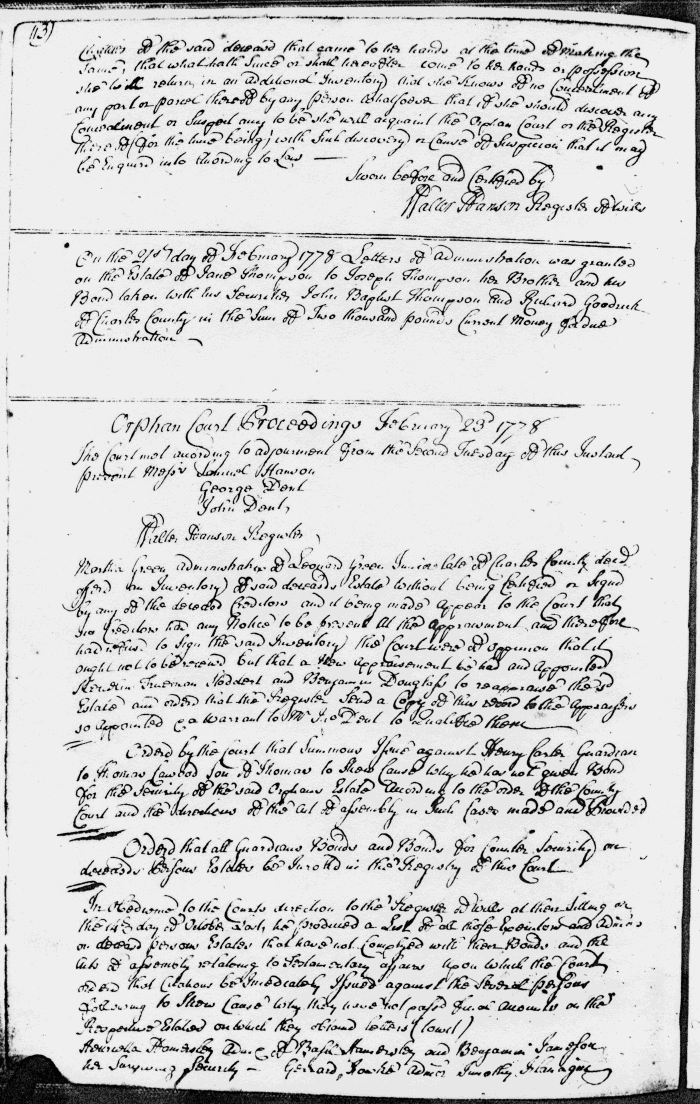 113)
Chattels of the said deceased that came to her hands at the time of Making the
same, that what hath since or shall hereafter come to her hands or possession
she will return in an additional Inventory that she Knows of no Concealment of
any part or parcel thereof by any person whatsoever that if she should discover any
Concealment or suspect any to be she will acquaint the Orphan Court or the Register
thereof (for the time being) with such discovery or Cause of Suspicion that it may
be Enquired into according to Law —
Sworn before and Certified by
Walter Hanson Register of wills
On the 21st day of February 1778 Letters of administration was granted
on the Estate of Jane Thompson to Joseph Thompson her Brother and his
Bond taken with his Securities John Baptist Thompson and Richard Goodrick
of Charles County in the Sum of Two thousand pounds Current Money for due
administration
Orphan Court Proceedings February 23d 1778
The Court met according to adjournment from the Second Tuesday of this Instant
present Messrs Samuel Hanson
George Dent
John Dent,
Walter Hanson Register,
Martha Green administratrix of Leonard Green Junior late of Charles County decd.
offerd an Inventory of said deceaseds Estate without being Certified or Signd
by any of the deceasd Creditors and it being made Appear to the Court that
no Creditors had any Notice to be present at the Appraisment and therefore
had refused to sign the said Inventory the Court were of oppinion that it
ought not to be received but that a New Appraisement be had and Appointed
Trueman Stoddert and Benjamin Douglass to reappraise the sd
Estate and orderd that the Register Send a Copy of this record to the Appraisers
so Appointed & a warrant to Mr Jno Dent to Qualifie them
Orderd by the Court that Summons Issue against Henry Carter Guardian
to Thomas son of Thomas to Shew Cause why he has not given Bond
for the Security of the said Orphans Estate According to the order of the County
Court and the directions of the Act of assembly in Such Cases made and Provided
Orderd that all Guardians Bonds and Bonds for Counter Security on
deceasds persons Estates be Inrolld in the Registry of this Court
In Obedience to the Courts direction to the Register of Wills at their Sitting on
the 14th day of October Last, he produced a List of all those Executors and Admrs
on deceasd persons Estates that have not Complyed with their Bonds and the
Acts of assembly relateing to Testamentary affairs upon which the Court
orderd that Citations be Imediately Issued against the Several persons
following to Shew Cause why they have not passd final accounts on the
Respective Estates on which they obtaind letters (towit)
Henrietta Hamersley Admx of Basil Hamersley and Benjamin Jameson
her Surviving Security — Gerrard Fowke Admor Timothy Flannigan